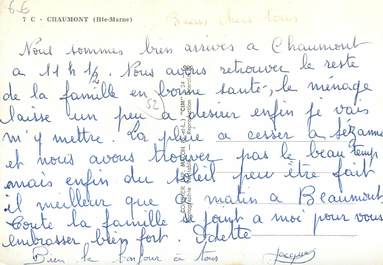 6-6
7 C - CHAUMONT (Hte-Marne)
Biens chers tous
Nous sommes bien arrivés a Chaumont
a 11 h ½. Nous avons retrouver le reste
de la famille en bonne santé, le ménage
laisse un peu a désirer enfin je vais
m'y mettre. La pluie a cesser a Sézanne
et nous avons trouver pas le beau temps
mais enfin du soleil peu être fait
il meilleur que ce matin a Beaumont
toute la famille se joint a moi pour vous
embrasser bien fort. Odette
Bien le bonjour à tous Jacques
52